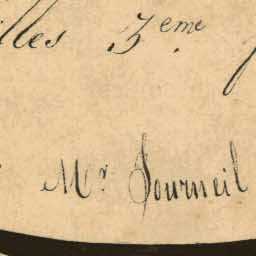 illes 3.eme
Mr Journeil